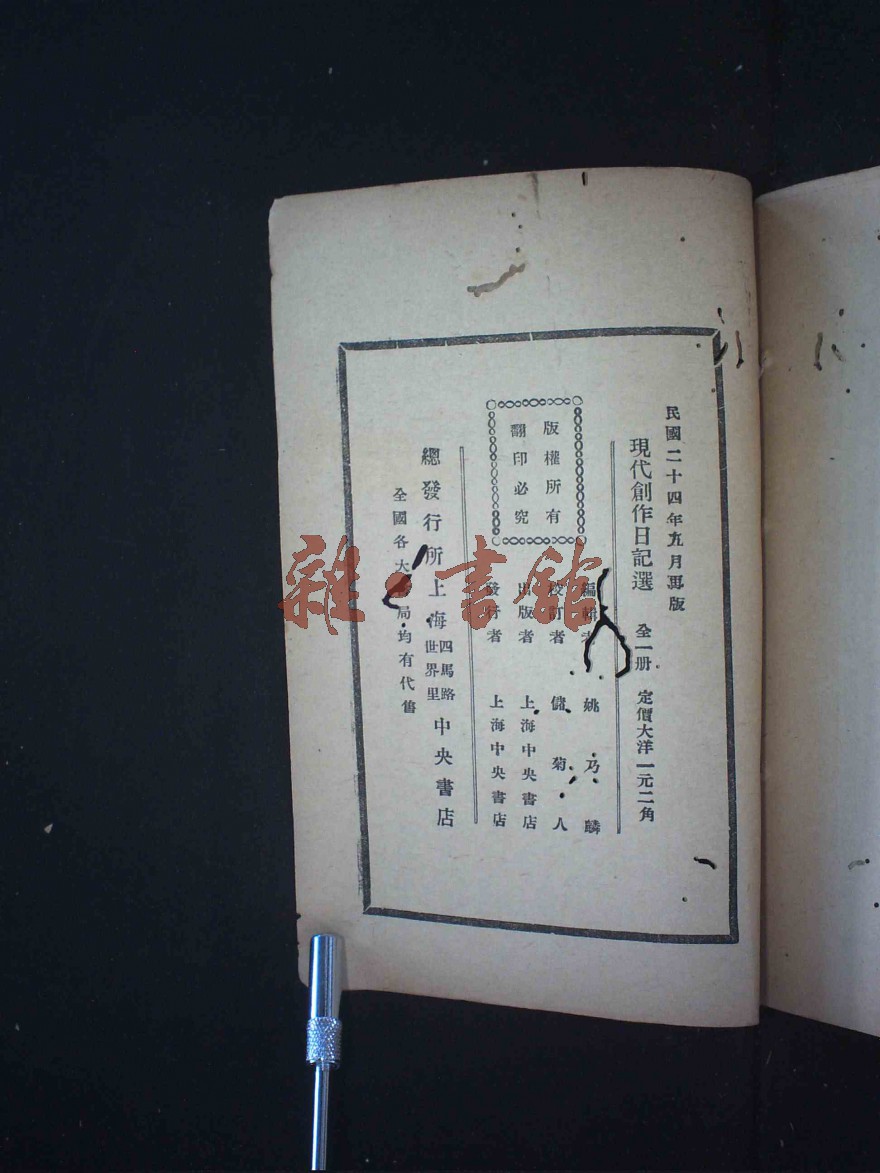 民國二十四年九月再版
現代創作日記選 全一册 定價大洋一元二角
版權所有
翻印必究
編輯者 姚乃麟
校訂者 儲菊人
出版者 上海中央書店
發行者 上海中央書店
總發行所 上海 四馬路 世界里 中央書店
全國各大 局均有代售
雜 書館